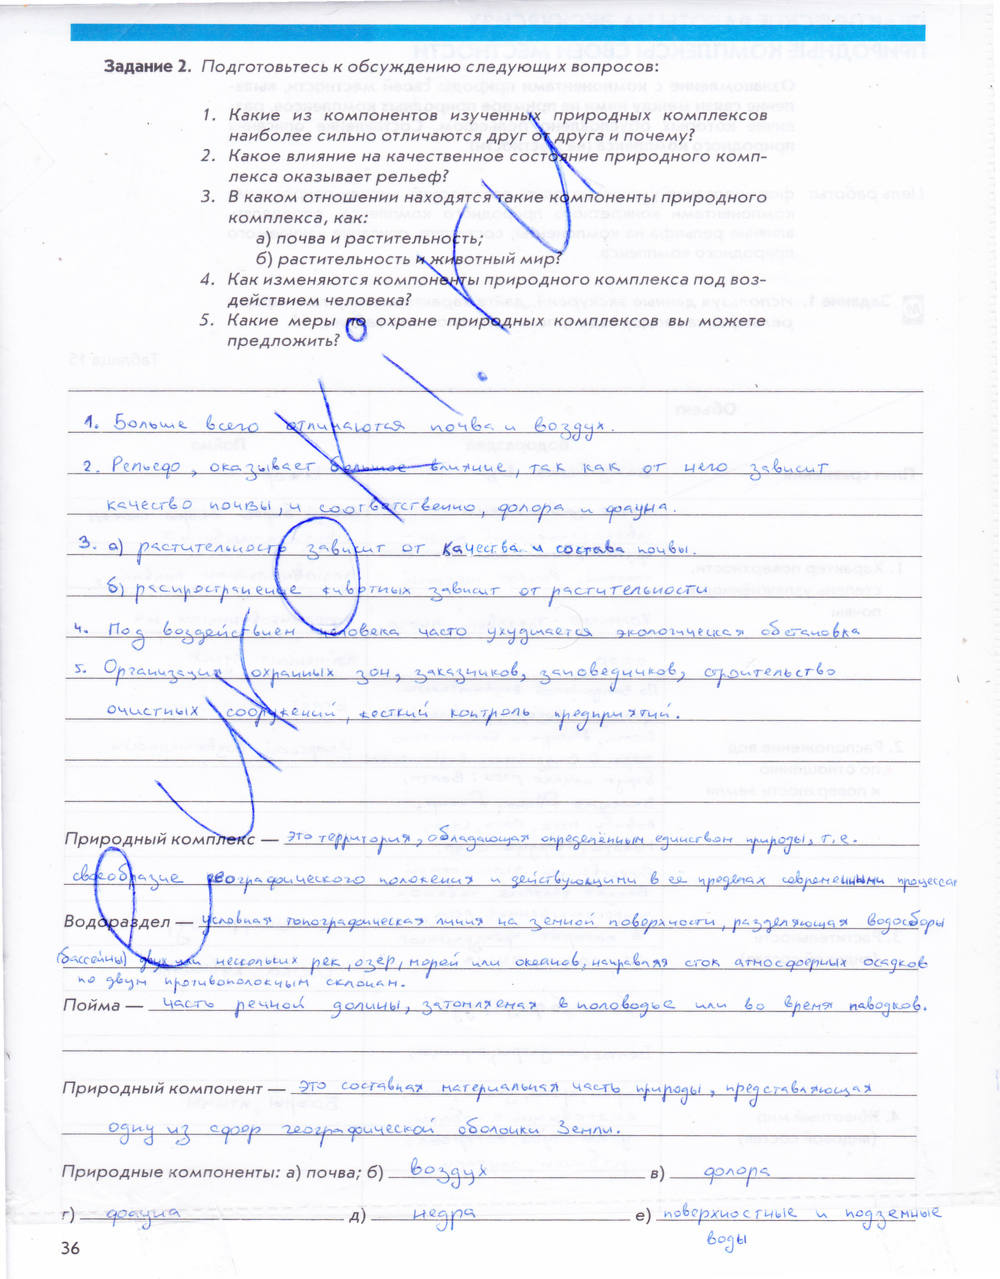 Задание 2. Подготовьтесь к обсуждению следующих вопросов:
1. Какие из компонентов изученных природных комплексов
наиболее сильно отличаются друг от друга и почему?
2. Какое влияние на качественное состояние природного комп-
лекса оказывает рельеф?
3. В каком отношении находятся такие компоненты природного
комплекса, как:
а) почва и растительность;
б) растительность и животный мир?
4. Как изменяются компоненты природного комплекса под воз-
действием человека?
5. Какие меры по охране природных комплексов вы можете
предложить?
1. Больше всего отличаются почва и воздух.
2. Рельеф, оказывает большое влияние, так как от него зависит
качество почвы, и соответственно, флора и фауна.
3. а) растительность зависит от качества и состава почвы.
б) распространение животных зависит от растительности
4. Под воздействием человека часто ухудшается экологическая обстановка
5. Организация охранных зон, заказников, заповедников, строительство
очистных сооружений, жесткий контроль предприятий.
Природный комплекс — это территория, обладающая определённым единством природы, т.е.
своеобразие географического положения и действующими в её пределах современными процессам
Водораздел — условная топографическая линия на земной поверхности, разделяющая водосборы
(бассейны) двух или нескольких рек, озер, морей или океанов, направляя сток атмосферных осадков
по двум противоположным склонам.
Пойма — часть речной долины, затопляемая в половодье или во время паводков.
Природный компонент — это составная материальная часть природы, представляющая
одну из сфер географической оболочки Земли.
Природные компоненты: а) почва; б) воздух в) флора
г) фауна д) недра е) поверхностные и подземные
воды
36